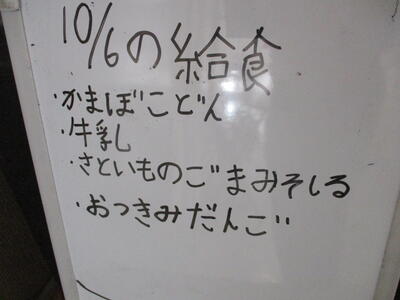 10/6の給食
・かまぼこどん
・牛乳
・さといものごまみそしる
・おつきみだんご